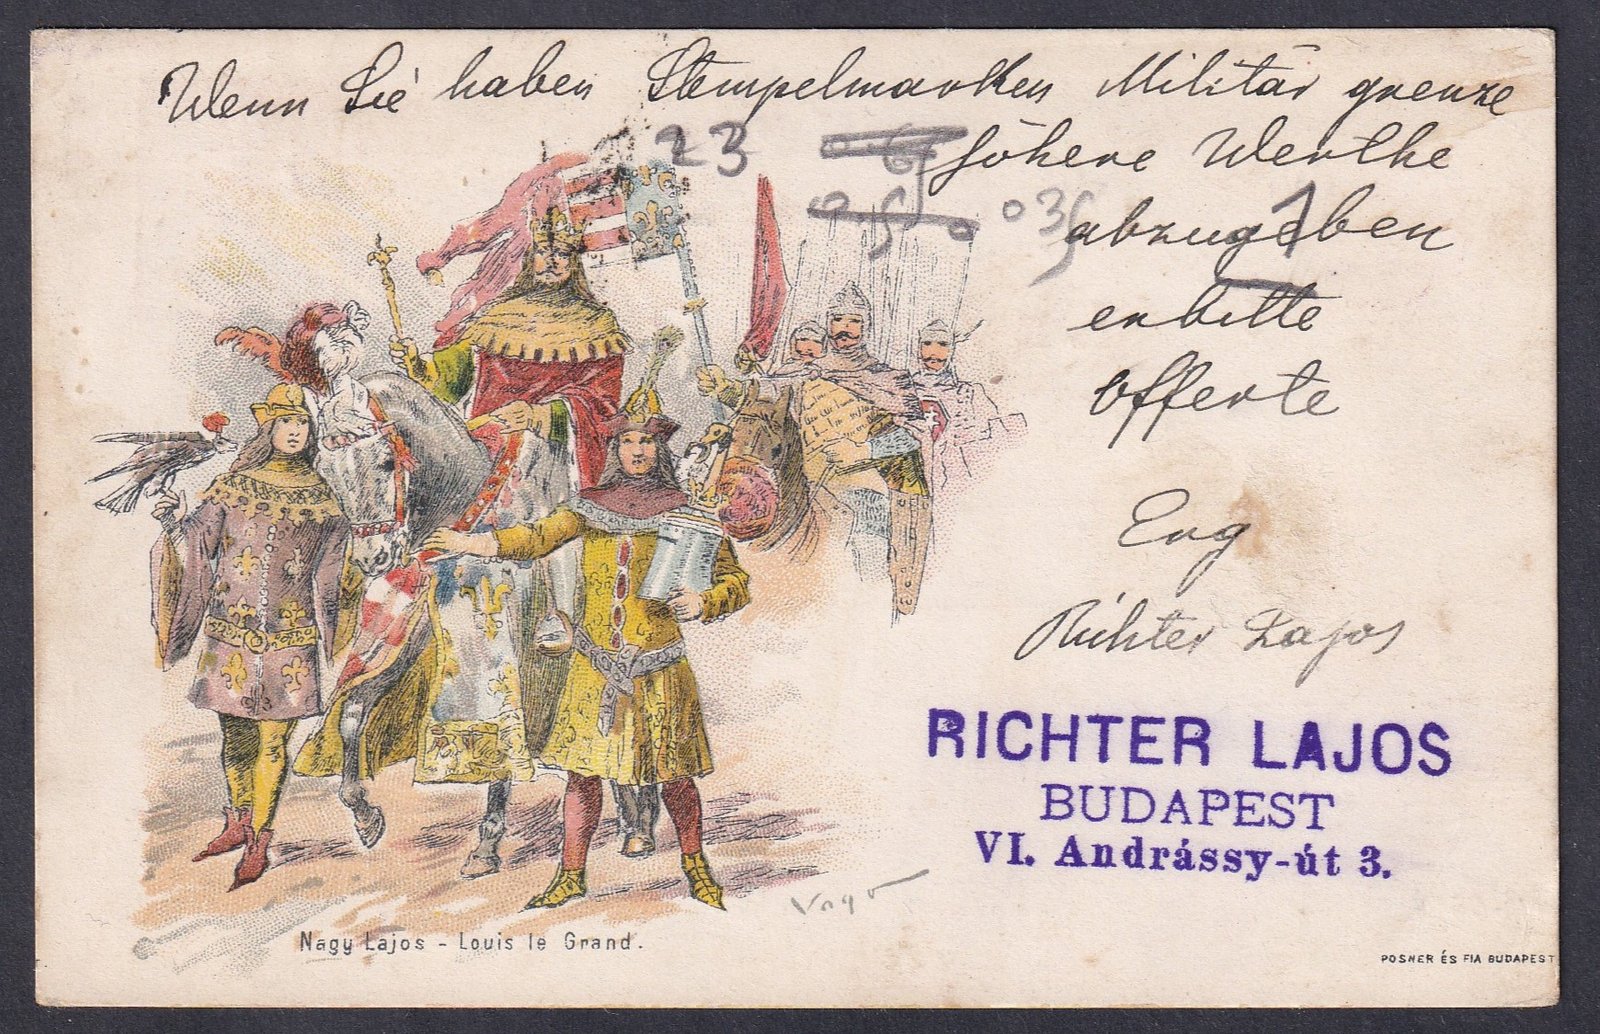 Wenn Sie haben Stempelmarken Militär grenze
höhere Werthe
abzugeben
erbitte
Offerte
Erg
Richter Lajos
23
035
1
RICHTER LAJOS
BUDAPEST
VI. Andrássy-út 3.
Nagy Lajos - Louis le Grand.
POSNER ÉS FIA BUDAPEST